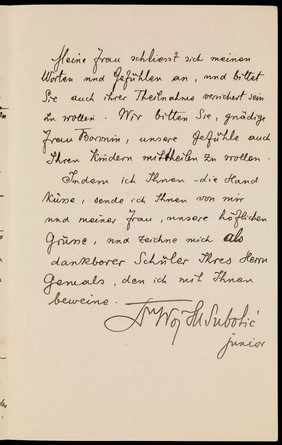 Meine Frau schliesst sich meinen
Worten und Gefühlen an, und bittet
Sie auch ihrer Theilnahme versichert sein
zu wollen. Wir bitten Sie, gnädige
Frau Baronin, unsere Gefühle auch
Ihren Kindern mittheilen zu wollen.
Indem ich Ihnen die Hand
küsse, sende ich Ihnen von mir
und meiner Frau, unsere höflichen
Grüsse, und zeichne mich als
dankbarer Schüler Ihres Herrn
Gemals, den ich mit Ihnen
beweine.
Dr Voj M Subotić
junior